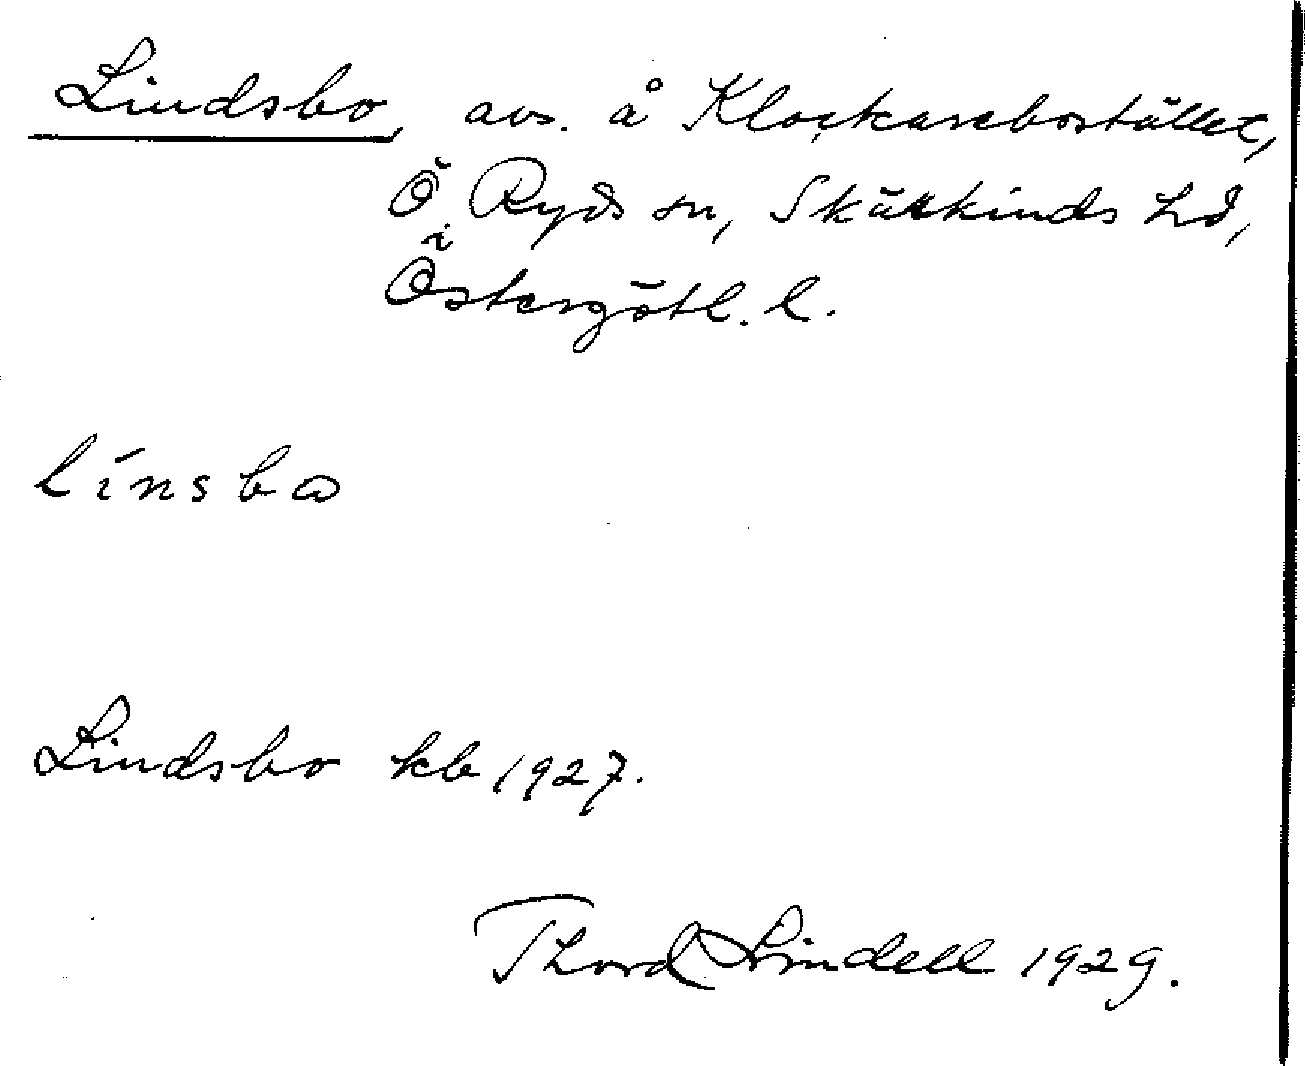 Lindsbo, avs. å Klockarebostället,
Ö. Ryds sn, Skärkinds hd,
Östergötl. l.
línsbω
Lindsbo kb 1927.
Thord Lindell 1929.